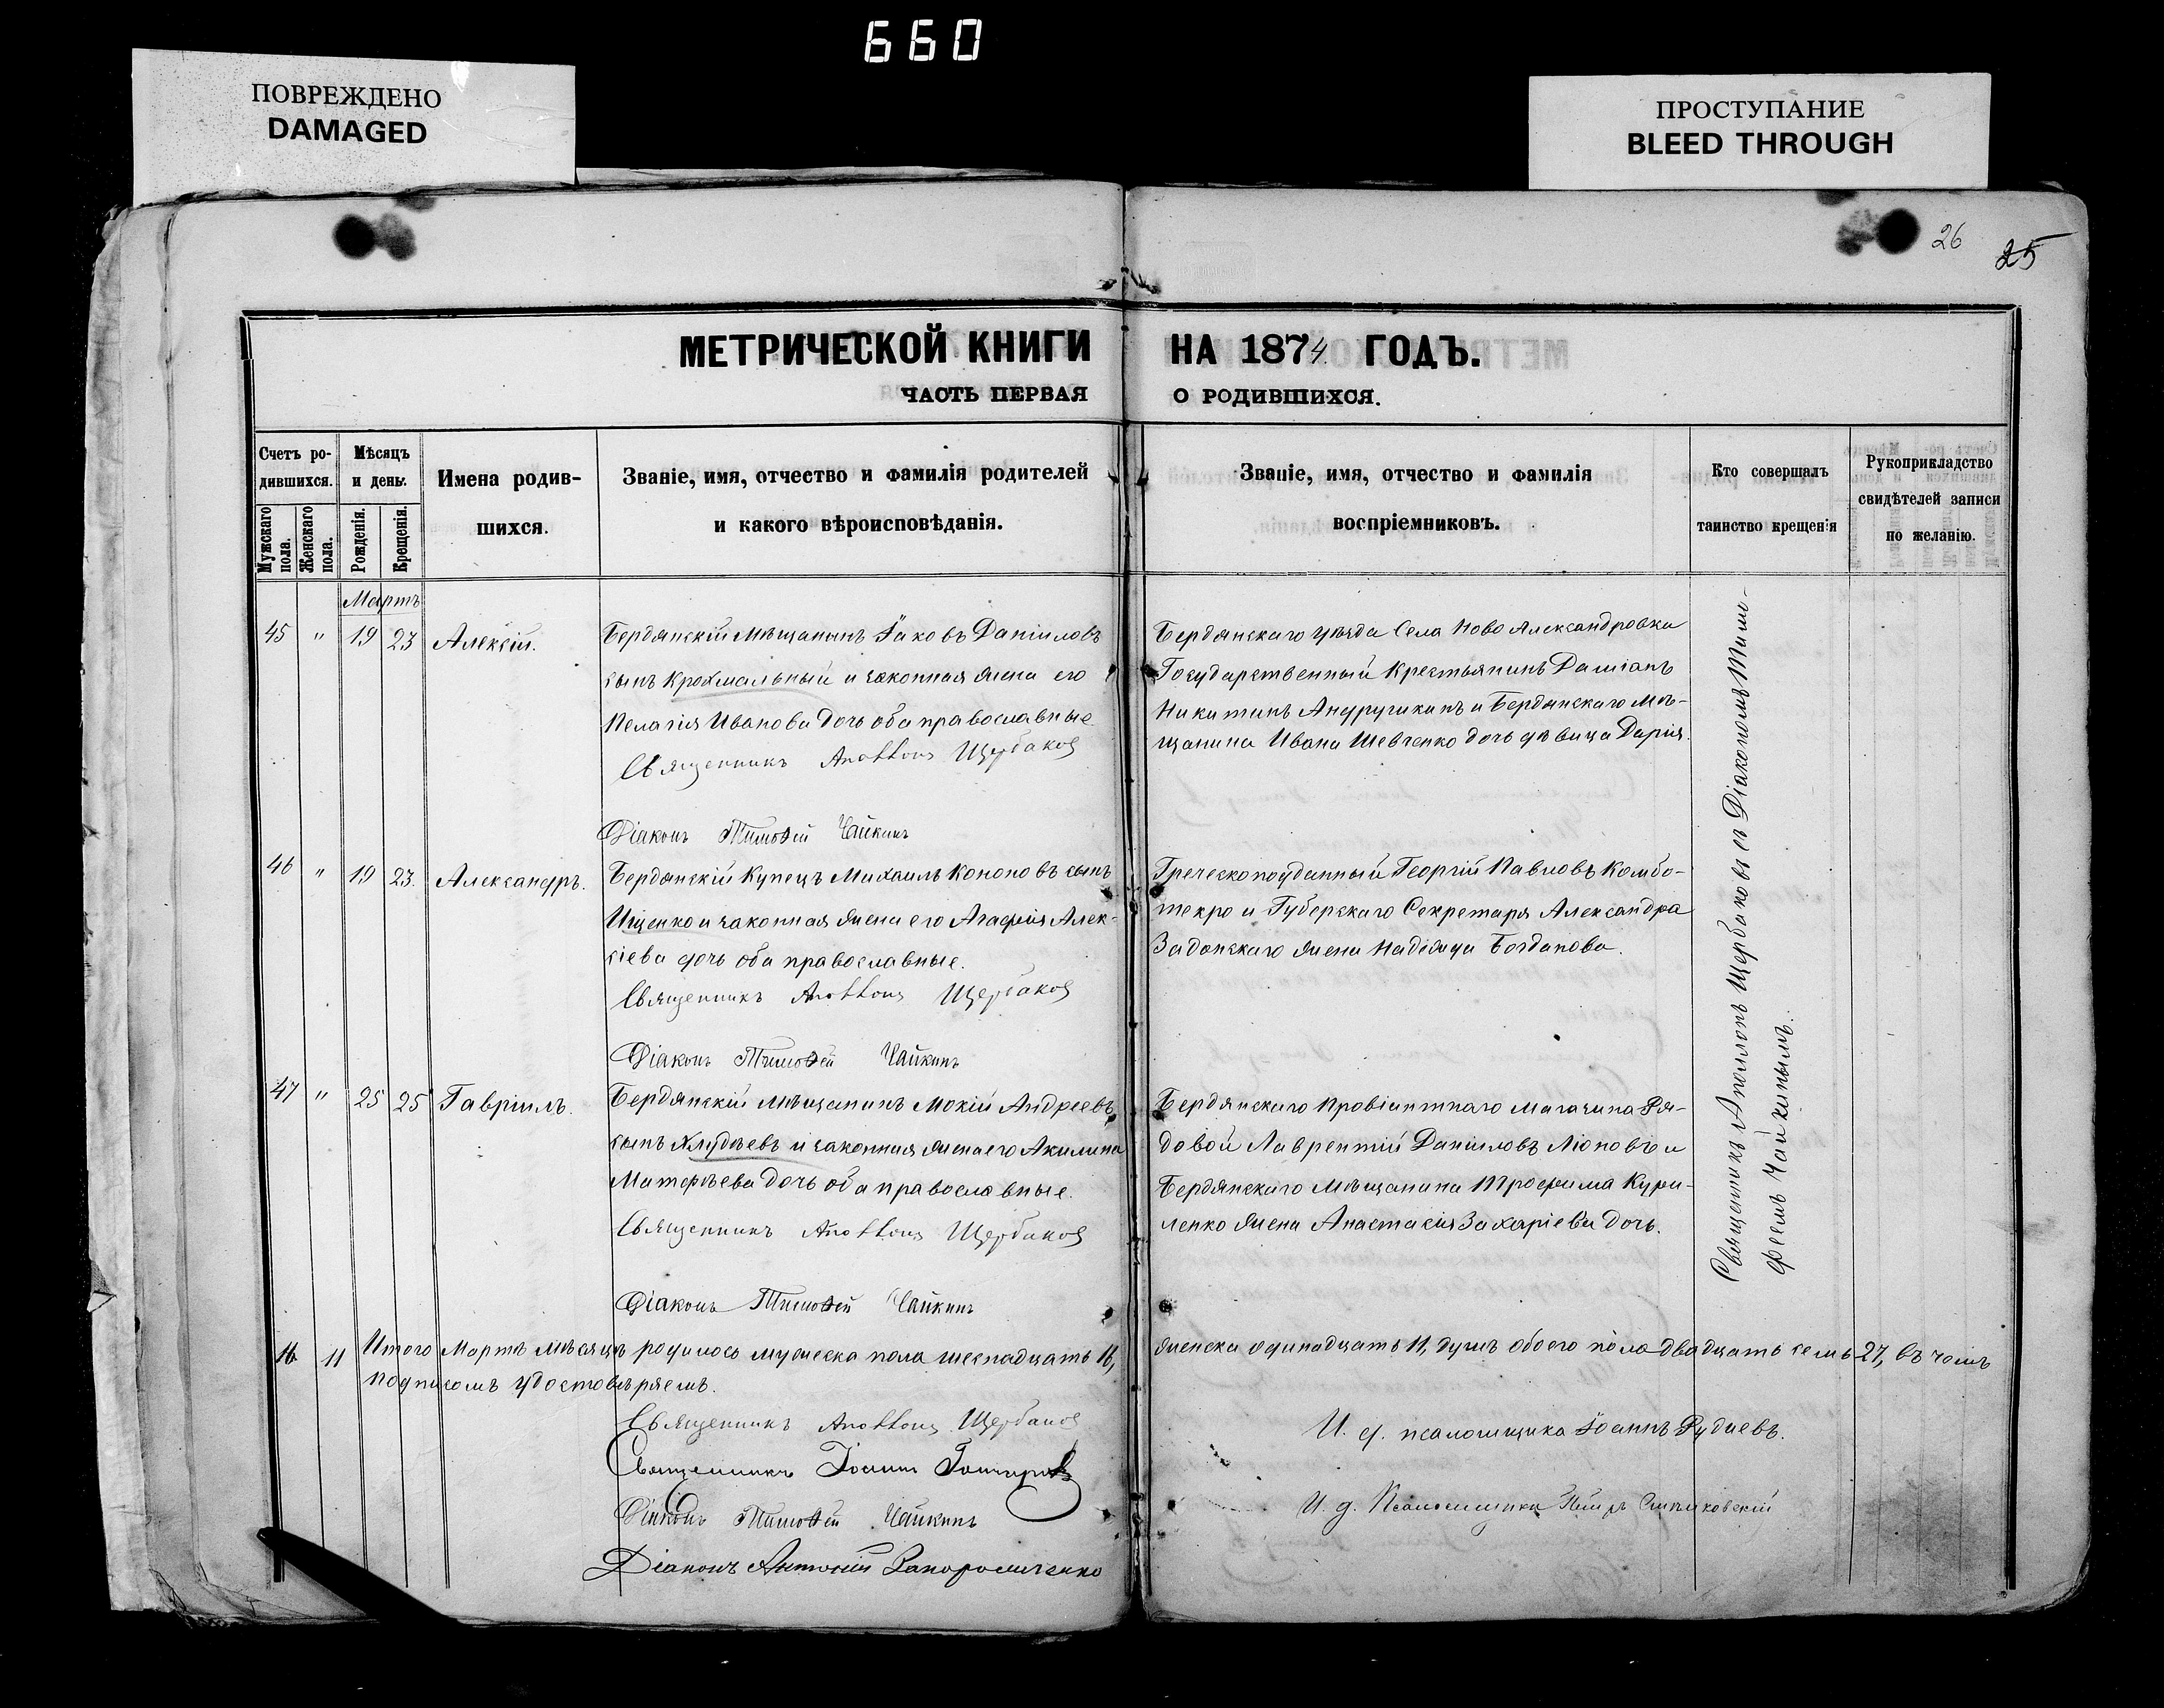 660
ПОВРЕЖДЕНО
DAMAGED
ПРОСТУПАНИЕ
BLEED THROUGH
26
25
МЕТРИЧЕСКОЙ КНИГИ НА 1874 ГОДЪ.
ЧАСТЬ ПЕРВАЯ О РОДИВШИХСЯ.
Счетъ ро-
дившихся.
Мужскаго пола.
Женскаго пола.
Мѣсяцъ
и день.
Рожденія.
Крещенія.
Имена родив-
шихся.
Званіе, имя, отчество и фамилія родителей
и какого вѣроисповѣданія.
Званіе, имя, отчество и фамилія
воспріемниковъ.
Кто совершалъ
таинство крещенія
Рукоприкладство
свидѣтелей записи
по желанію.
Мартъ
45 " 19 23 Алексій.
Бердянскій Мѣщанинъ Іаковъ Даніиловъ
сынъ Крохмальный и законная жена его
Пелагія Иванова дочь оба православные
Священникъ Аполлонъ Щербаковъ
Діаконъ Тимоѳей Чайкинъ
Бердянскаго уѣзда Села Ново Александровки
Государственный Крестьянинъ Даміанъ
Никитинъ и Бердянскаго Мѣ-
щанина Ивана Шевченко дочь дѣвица Дарія.
46 " 19 23. Александръ.
Бердянскій Купецъ Михаилъ Кононовъ сынъ
Ищенко и законная жена его Агафія Алек-
сіева дочь оба православные.
Священникъ Аполлонъ Щербаковъ
Діаконъ Тимоѳей Чайкинъ
Греческоподданный Георгій Павловъ Комбо-
текро и Губерскаго Секретаря Александра
Задонскаго жена Надежда Богданова.
47 " 25 25 Гавріилъ.
Бердянскій Мѣщанинъ Мокій Андреевъ
сынъ Хлудѣевъ и законная жена его Акилина
Матфѣева дочь оба православные.
Священникъ Аполлонъ Щербаковъ
Діаконъ Тимоѳей Чайкинъ
Бердянскаго Провіантнаго магазина Ря-
довой Лаврентій Даніиловъ Ліоновъ и
Бердянскаго Мѣщанина Трофима Кури-
ленко жена Анастасія Захаріева дочь.
Священникъ Аполлонъ Щербаковъ съ Діакономъ Тимо-
феемъ Чайкинымъ.
16 11 Итого Мартъ мѣсяцъ родилось мужеска пола шеснадцать 16, женска одинадцать 11, душъ обоего пола двадцать семь 27, въ чемъ
подписомъ удостовѣряемъ.
Священникъ Аполлонъ Щербаковъ
Священникъ Іоаннъ Гончаровъ
Діаконъ Тимоѳей Чайкинъ
Діаконъ Антоній Запорожченко
И. д. псаломщика Іоаннъ Рудневъ.
И. д. Псаломщика Петръ